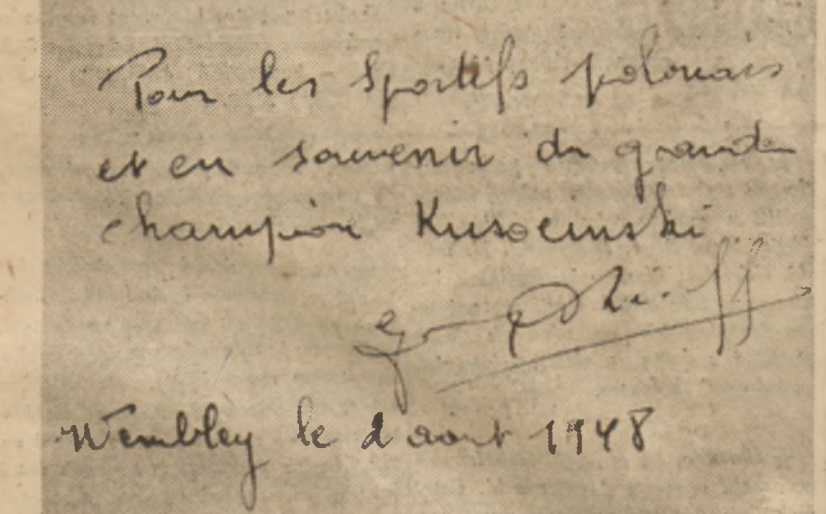 Pour les Sportifs polonais
et en souvenir du grand
champion Kusocinski
Wembley le 2 août 1948